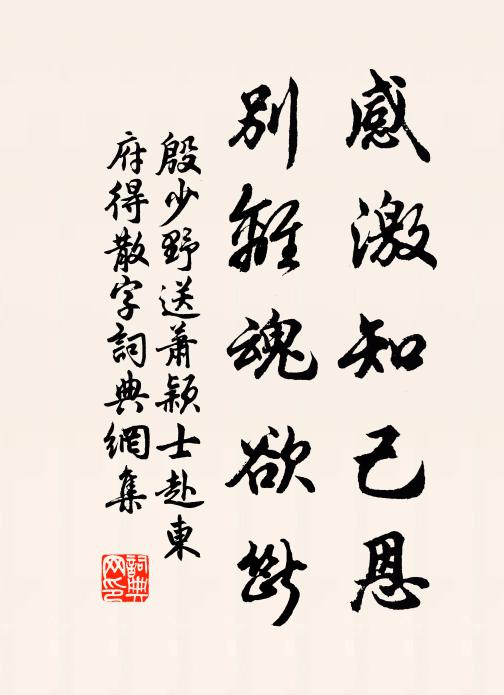 感激知己恩
別離魂欲斷
殷少野送蕭穎士赴東
府得散字詞典網集
詞典
网印